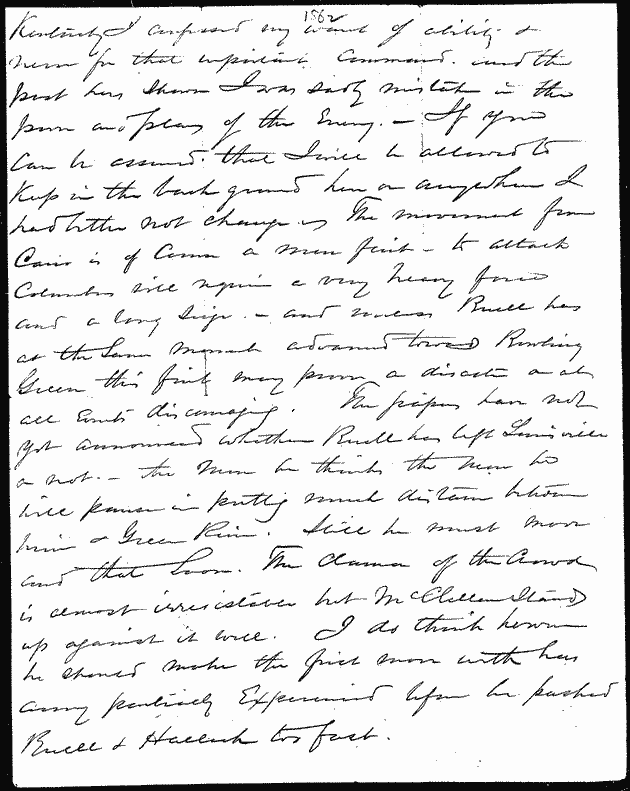 1862
Kentucky I confessed my want of ability &
nerve for that important command. and the
past has shown I was sadly mistaken in the
power and plans of the Enemy. — If you
can be assured that I will be allowed to
Keep in the back ground here or anywhere I
had better not change as The movement from
Cairo is of course a mere feint — to attack
Columbus will require a very heavy force
and a long siege. — and unless Buell has
at the same moment advanced toward Bowling
Green this feint may prove a disaster or at
all events discouraging. The papers have not
yet announced whether Buell has left Louisville
or not. — the more he thinks the more he
will pause in putting much distance between
him & Green River. Still he must move
and that soon. The clamor of the Crowd
is almost irresistible but McClellan Stands
up against it well. I do think however
he should make the first move with his
army partially Experienced before he pushed
Buell & Halleck too fast.